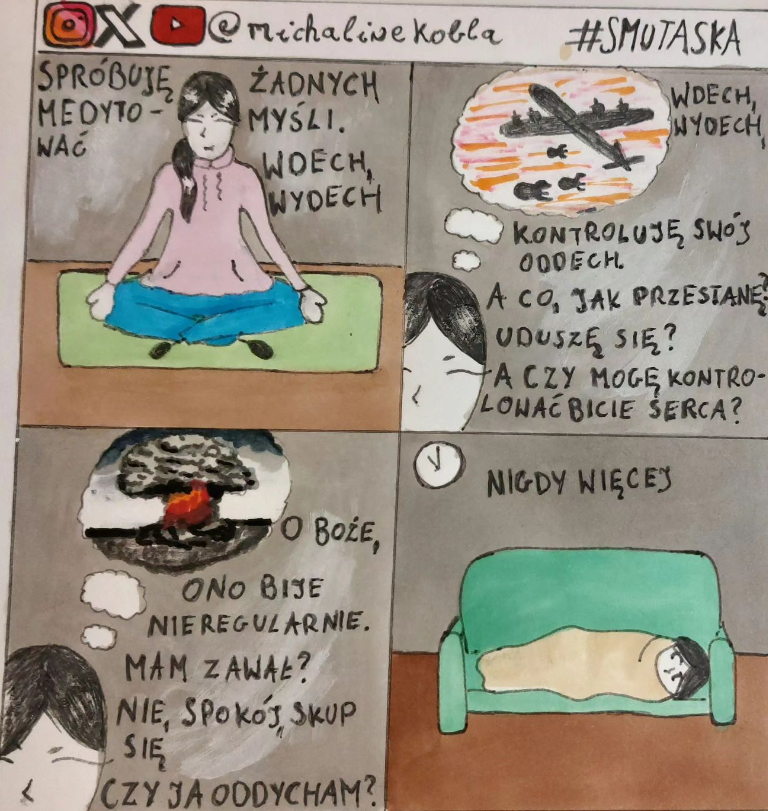 @michalinekobla #SMUTASKA
SPRÓBUJĘ
MEDYTO-
WAĆ
ŻADNYCH
MYŚLI.
WDECH,
WYDECH
WDECH,
WYDECH,
KONTROLUJĘ SWÓJ
ODDECH.
A CO, JAK PRZESTANĘ?
UDUSZĘ SIĘ?
A CZY MOGĘ KONTRO-
LOWAĆ BICIE SERCA?
O BOŻE,
ONO BIJE
NIEREGULARNIE.
MAM ZAWAŁ?
NIE, SPOKÓJ, SKUP
SIĘ
CZY JA ODDYCHAM?
NIGDY WIĘCEJ